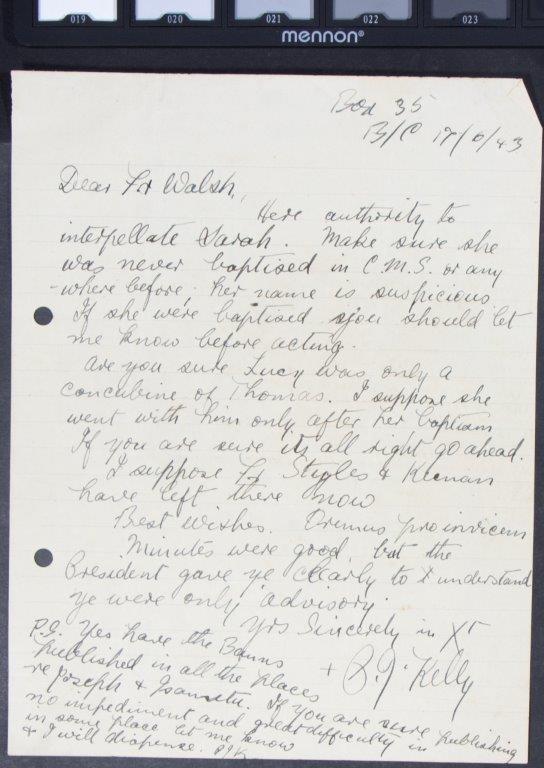 019 020 021 022 023
mennon®
Box 35
B/C 17/6/43
Dear Fr Walsh,
Here authority to
interpellate Sarah. Make sure she
was never baptised in C.M.S. or any
-where before; her name is suspicious
If she were baptised you should let
me know before acting.
Are you sure Lucy was only a
concubine of Thomas. I suppose she
went with him only after her baptism
If you are sure its all right go ahead.
I suppose Fr Styles & Keenan
have left there now
Best wishes. Oremus pro invicem
Minutes were good, but the
President gave ye clearly to understand
ye were only advisory.
Yrs Sincerely in Xt
+ P.J. Kelly
P.S. Yes have the Banns
published in all the places
re Joseph & . If you are sure
no impediment and great difficulty in publishing
in some place let me know
& I will dispense. PJK